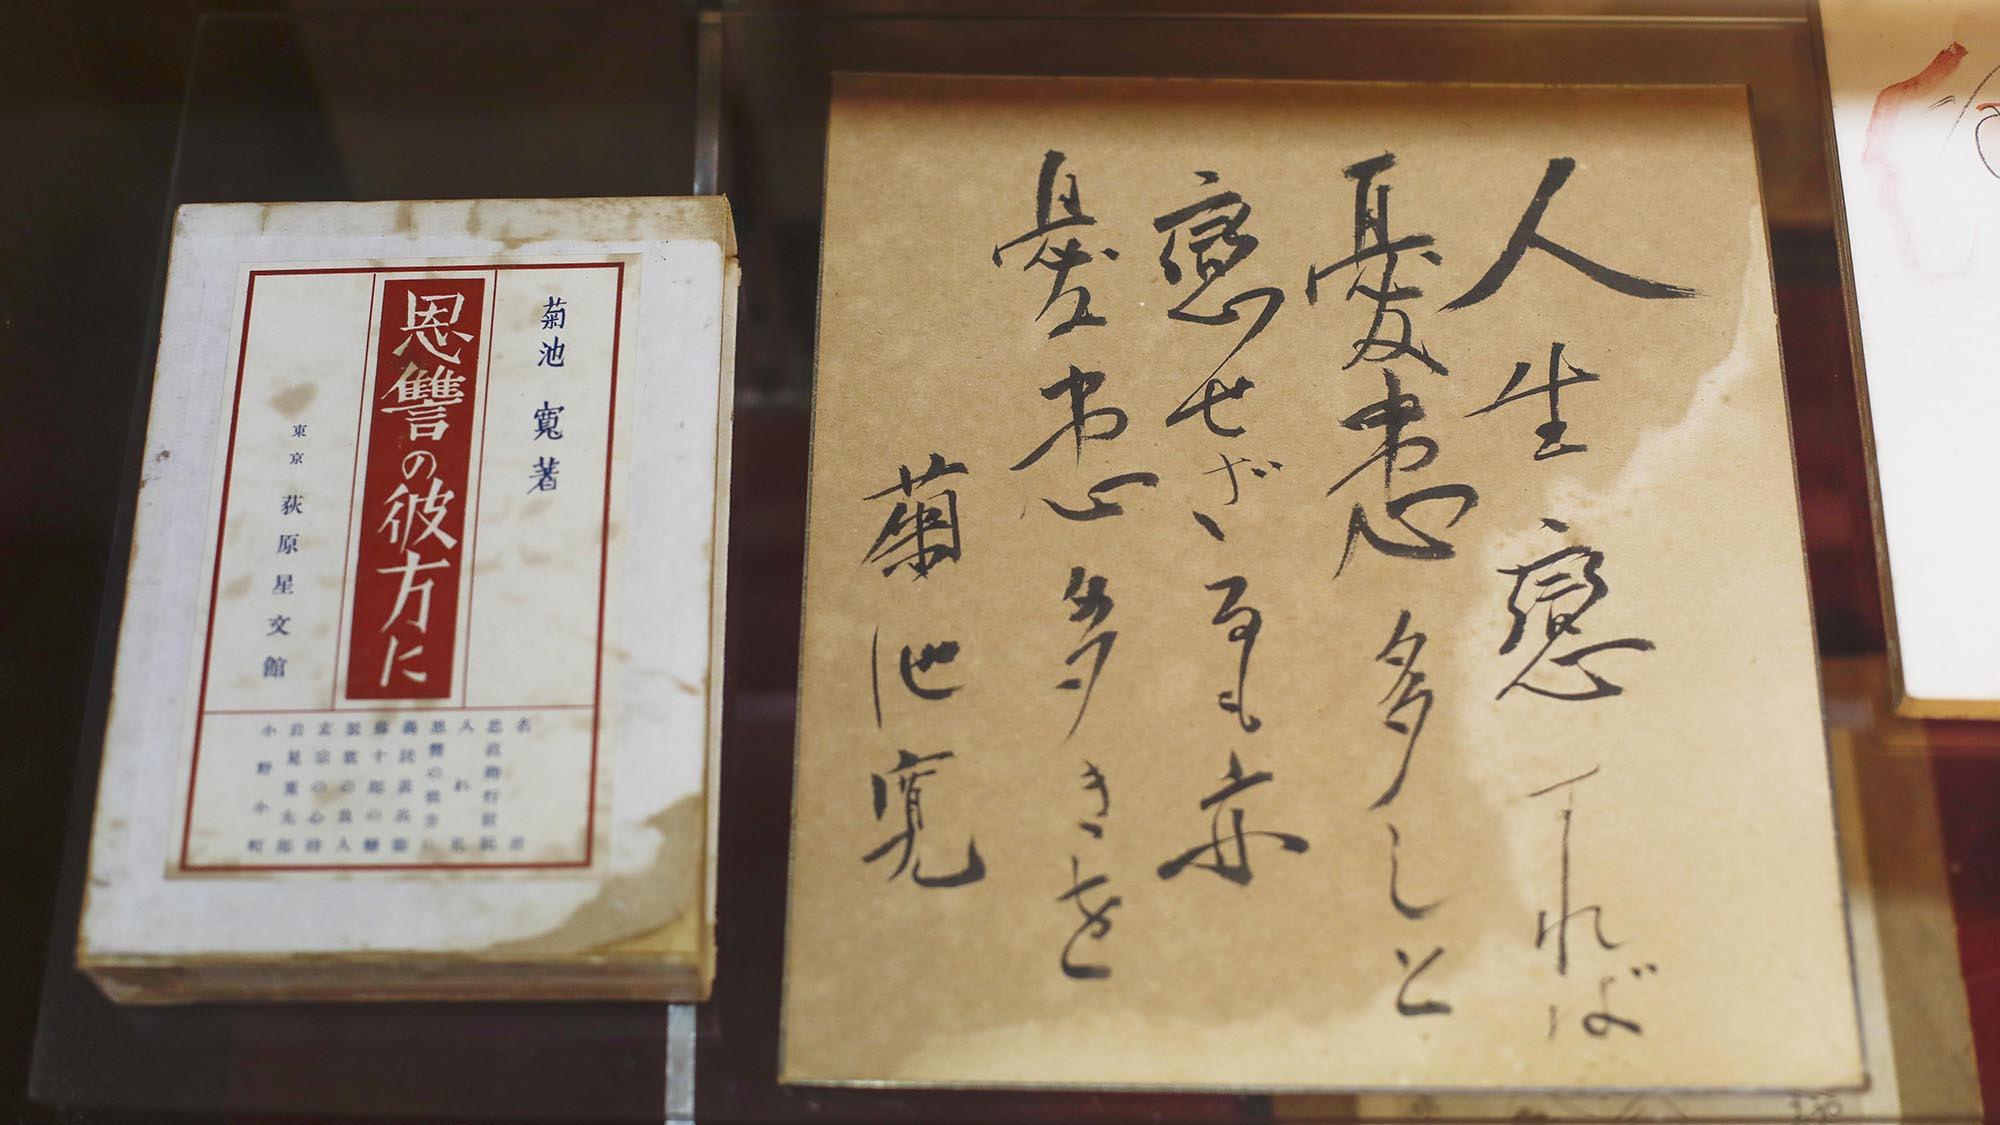 菊池 寛著
恩讐の彼方に
東京 荻原星文館
名君
忠直卿行狀記
入れ札
恩讐の彼方に
義民甚兵衞
藤十郎の戀
袈裟の良人
玄宗の心持
岩見重太郎
小野小町
人生戀すれば
憂患多しと
戀せざるも亦
憂患多きを
菊池寛